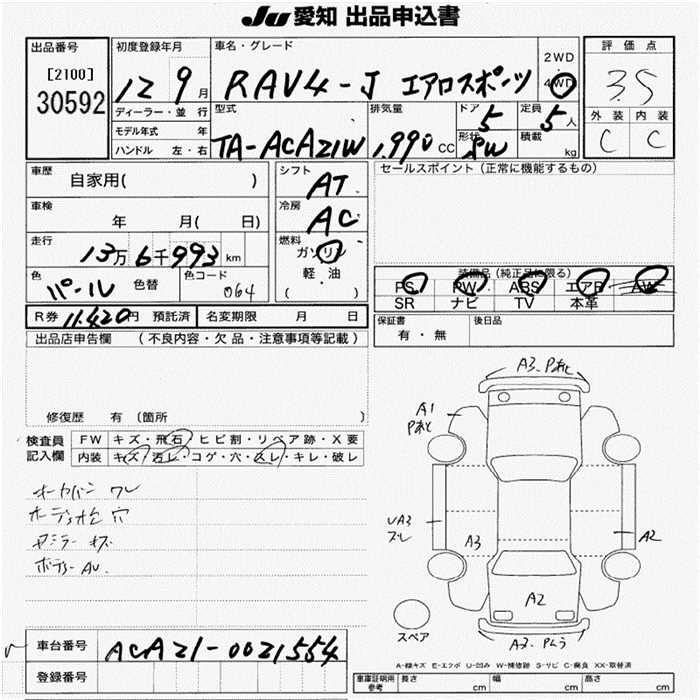 Ju 愛知 出品申込書
出品番号
[2100]
30592
初度登録年月
12 9月
ディーラー・並 行
モデル年式 年
ハンドル 左・右
車名・グレード
RAV4-J エアロスポーツ
2WD
・
4WD
型式
TA-ACA21W
排気量
1,990 CC
ドア
5
形状
SW
定員
5人
積載
kg
評 価 点
3.5
外 装 内 装
C C
車歴
自家用( )
車検
年 月( 日)
走行
13万6千993 km
色
パール 色替
色コード
064
シフト
AT
冷房
AC
燃料
ガソリン
軽 ・ 油
( )
セールスポイント (正常に機能するもの)
装備品 (純正品に限る)
PS PW ABS エアB AW
SR ナビ TV 本革
R券 11,420円 預託済 名変期限 月 日
保証書
有 ・ 無
後日品
出品店申告欄 (不良内容・欠品・注意事項等記載)
修復歴 有 〔箇所 〕
検査員
記入欄
FW キズ・飛石・ヒビ割・リペア跡・X要
内装 キズ・汚レ・コゲ・穴・スレ・キレ・破レ
オーディオ 穴
A3. Pあと
A1
Pあと
UA3
スレ
A3
A2
A2
スペア
A-線キズ E-エクボ U-凹み W-補修跡 S-サビ C-腐食 XX-取替済
車台番号 ACA21-0021554
登録番号
車庫証明用
参考
長さ cm 幅 cm 高さ cm